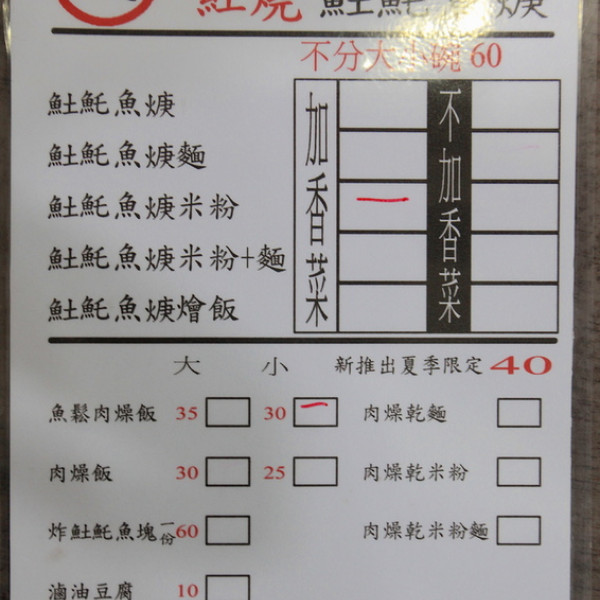 紅燒 魠魠
不分大小碗 60
魠魠魚焿 加香菜 不加香菜
魠魠魚焿麵
魠魠魚焿米粉 一
魠魠魚焿米粉+麵
魠魠魚焿燴飯
大 小 新推出夏季限定 40
魚鬆肉燥飯 35 30 一 肉燥乾麵
肉燥飯 30 25 肉燥乾米粉
炸魠魠魚塊一份60 肉燥乾米粉麵
滷油豆腐 10